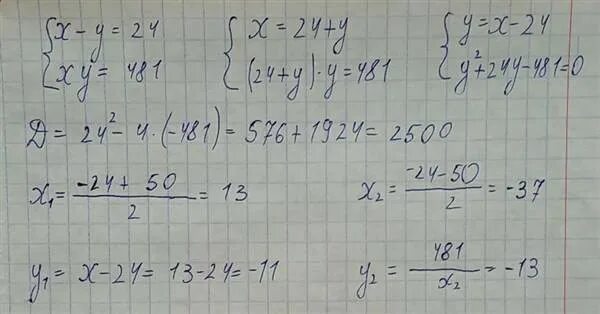 {x - y = 24 {x = 24 + y {y = x - 24
{xy = 481 {(24 + y) · y = 481 {y² + 24y - 481 = 0
D = 24² - 4 · (-481) = 576 + 1924 = 2500
x₁ = (-24 + 50)/2 = 13 x₂ = (-24 - 50)/2 = -37
y₁ = x - 24 = 13 - 24 = -11 y₂ = 481/x₂ = -13